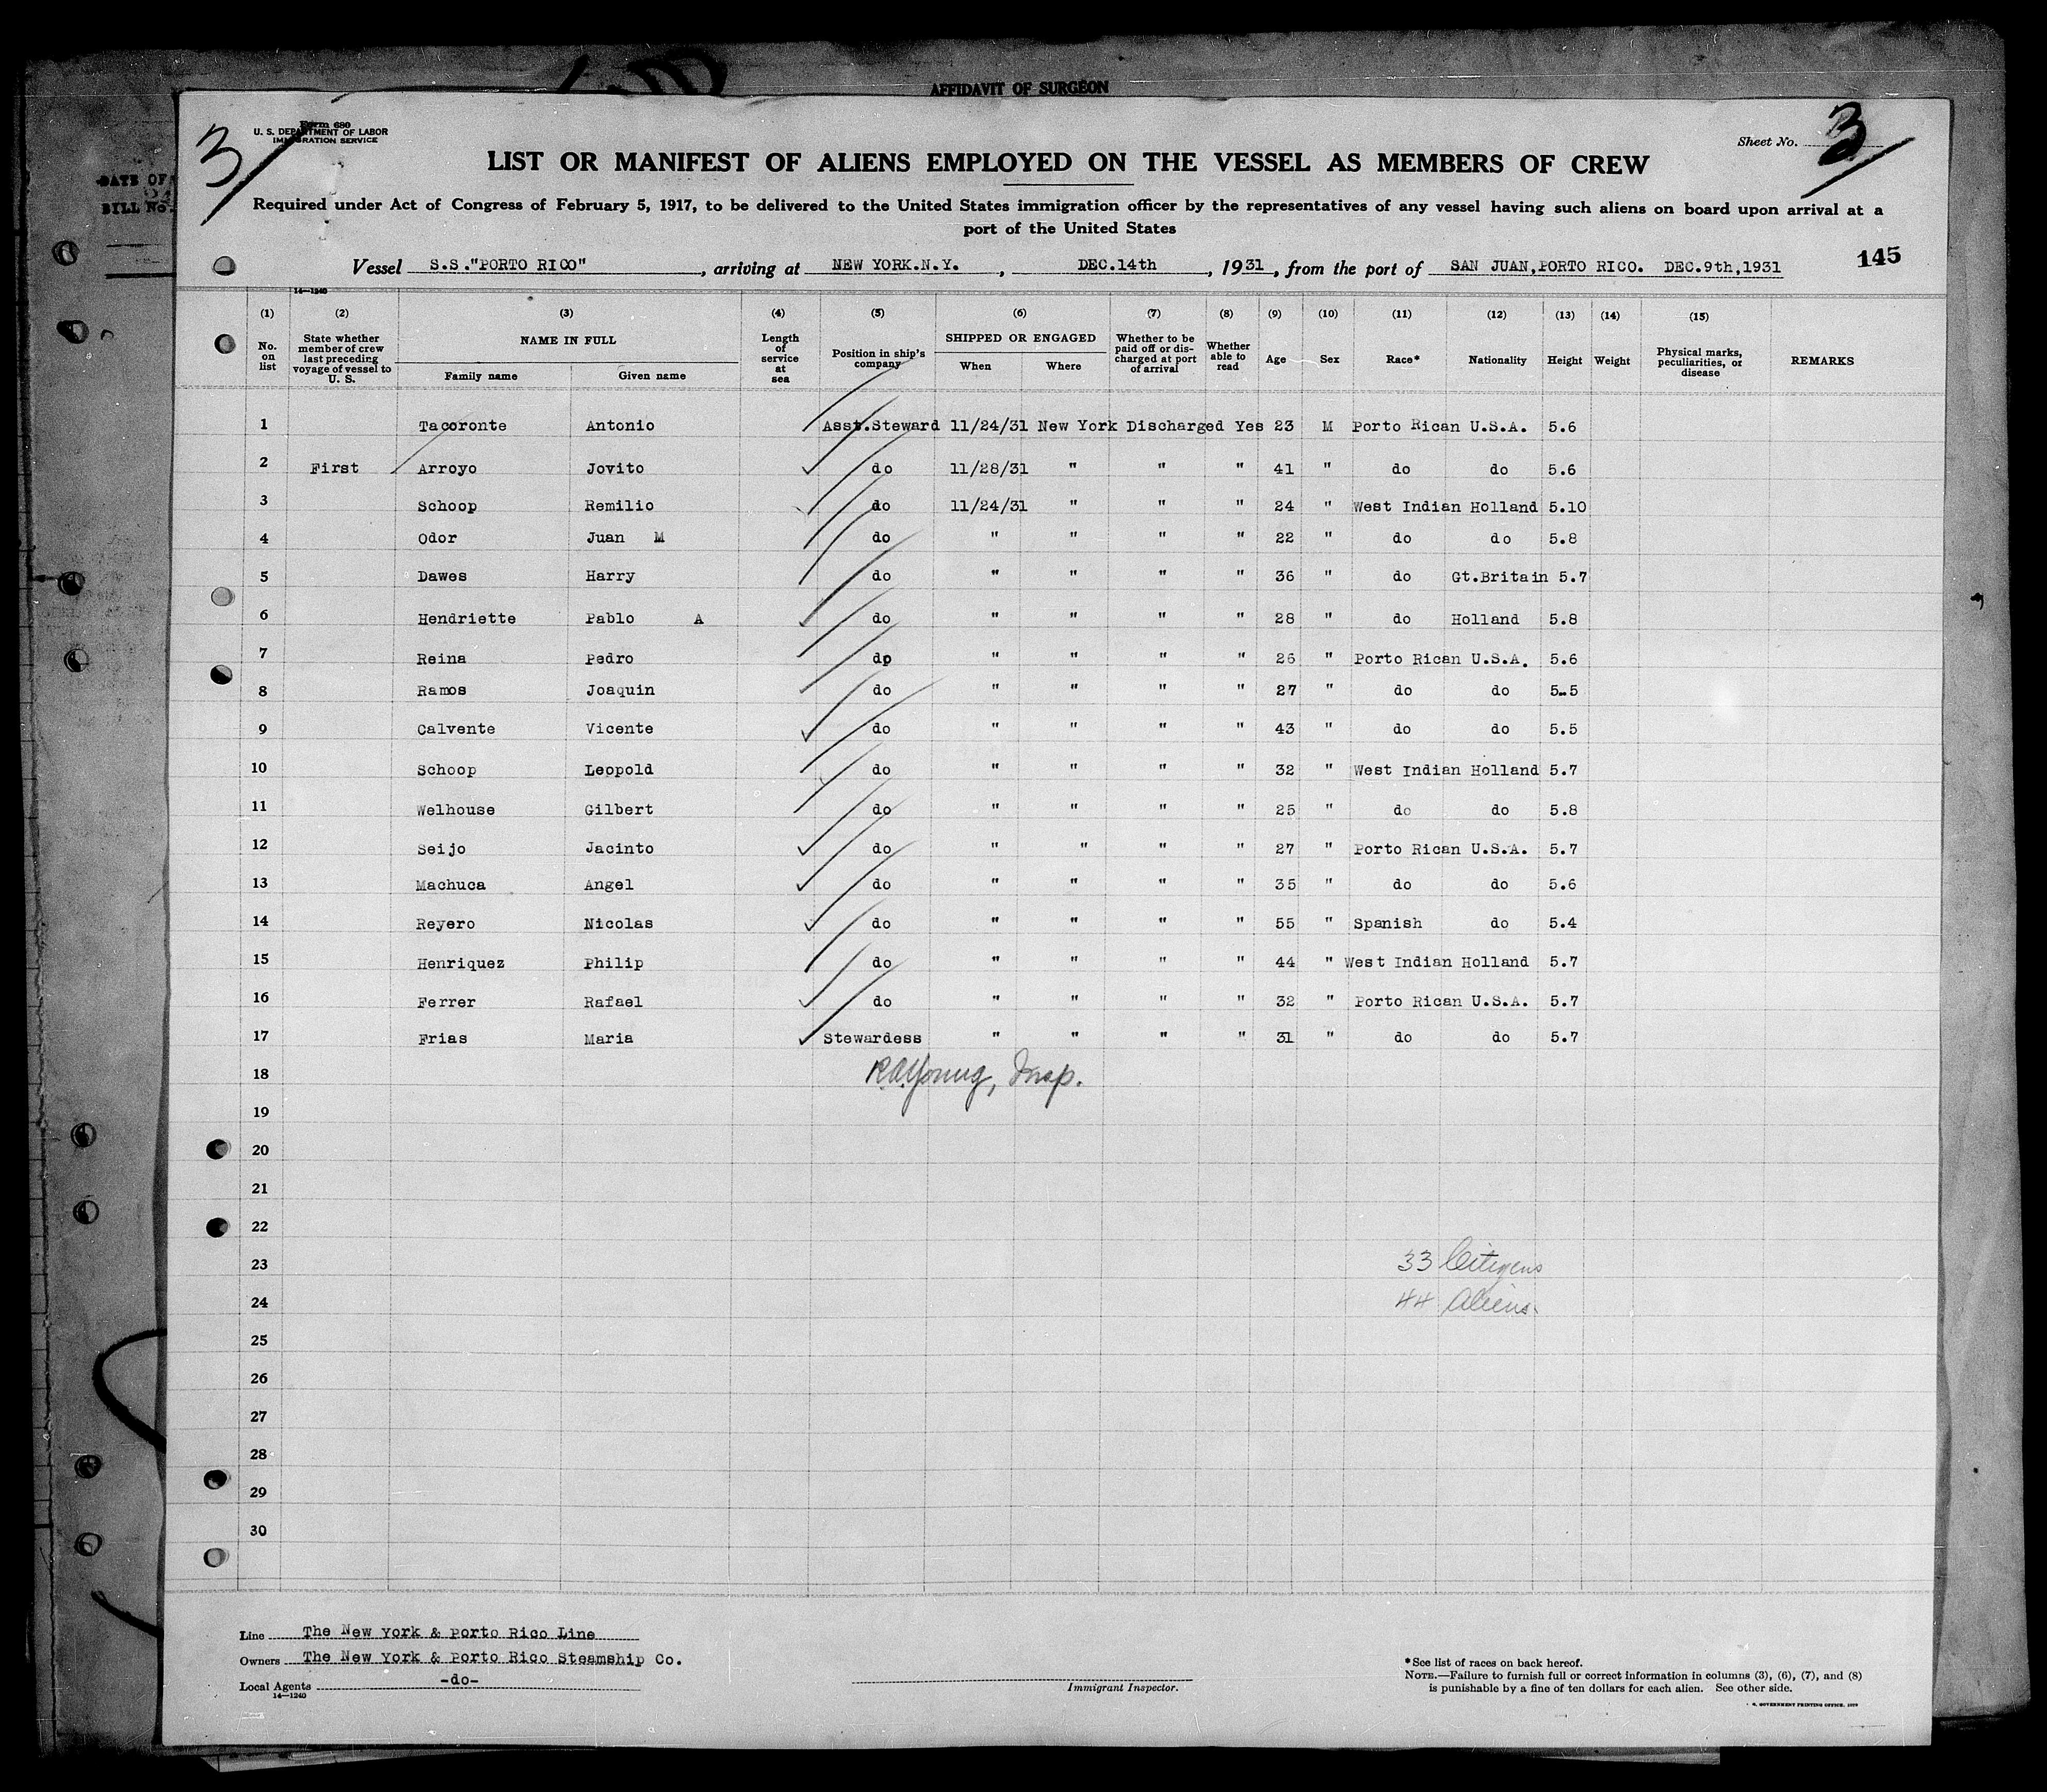 AFFIDAVIT OF SURGEON
DATE OF
BILL No.
3
Form 680
U. S. DEPARTMENT OF LABOR
IMMIGRATION SERVICE
Sheet No. 3
LIST OR MANIFEST OF ALIENS EMPLOYED ON THE VESSEL AS MEMBERS OF CREW
Required under Act of Congress of February 5, 1917, to be delivered to the United States immigration officer by the representatives of any vessel having such aliens on board upon arrival at a
port of the United States
Vessel S.S."PORTO RICO", arriving at NEW YORK.N.Y., DEC.14th, 1931, from the port of SAN JUAN,PORTO RICO. DEC.9th,1931
145
14—1240
(1) (2) (3) (4) (5) (6) (7) (8) (9) (10) (11) (12) (13) (14) (15)
No. on list State whether member of crew last preceding voyage of vessel to U. S. NAME IN FULL Family name Given name Length of service at sea Position in ship's company SHIPPED OR ENGAGED When Where Whether to be paid off or discharged at port of arrival Whether able to read Age Sex Race* Nationality Height Weight Physical marks, peculiarities, or disease REMARKS
1 Tacoronte Antonio Asst.Steward 11/24/31 New York Discharged Yes 23 M Porto Rican U.S.A. 5.6
2 First Arroyo Jovito do 11/28/31 " " " 41 " do do 5.6
3 Schoop Remilio do 11/24/31 " " " 24 " West Indian Holland 5.10
4 Odor Juan M do " " " " 22 " do do 5.8
5 Dawes Harry do " " " " 36 " do Gt.Britain 5.7
6 Hendriette Pablo A do " " " " 28 " do Holland 5.8
7 Reina Pedro dp " " " " 26 " Porto Rican U.S.A. 5.6
8 Ramos Joaquin do " " " " 27 " do do 5.5
9 Calvente Vicente do " " " " 43 " do do 5.5
10 Schoop Leopold do " " " " 32 " West Indian Holland 5.7
11 Welhouse Gilbert do " " " " 25 " do do 5.8
12 Seijo Jacinto do " " " " 27 " Porto Rican U.S.A. 5.7
13 Machuca Angel do " " " " 35 " do do 5.6
14 Reyero Nicolas do " " " " 55 " Spanish do 5.4
15 Henriquez Philip do " " " " 44 " West Indian Holland 5.7
16 Ferrer Rafael do " " " " 32 " Porto Rican U.S.A. 5.7
17 Frias Maria Stewardess " " " " 31 " do do 5.7
18 R.A.Young, Insp.
19
20
21
22
23 33 Citizens
24 44 Aliens.
25
26
27
28
29
30
Line The New York & Porto Rico Line
Owners The New York & Porto Rico Steamship Co.
Local Agents -do-
14—1240
Immigrant Inspector.
*See list of races on back hereof.
NOTE.—Failure to furnish full or correct information in columns (3), (6), (7), and (8)
is punishable by a fine of ten dollars for each alien. See other side.
GOVERNMENT PRINTING OFFICE